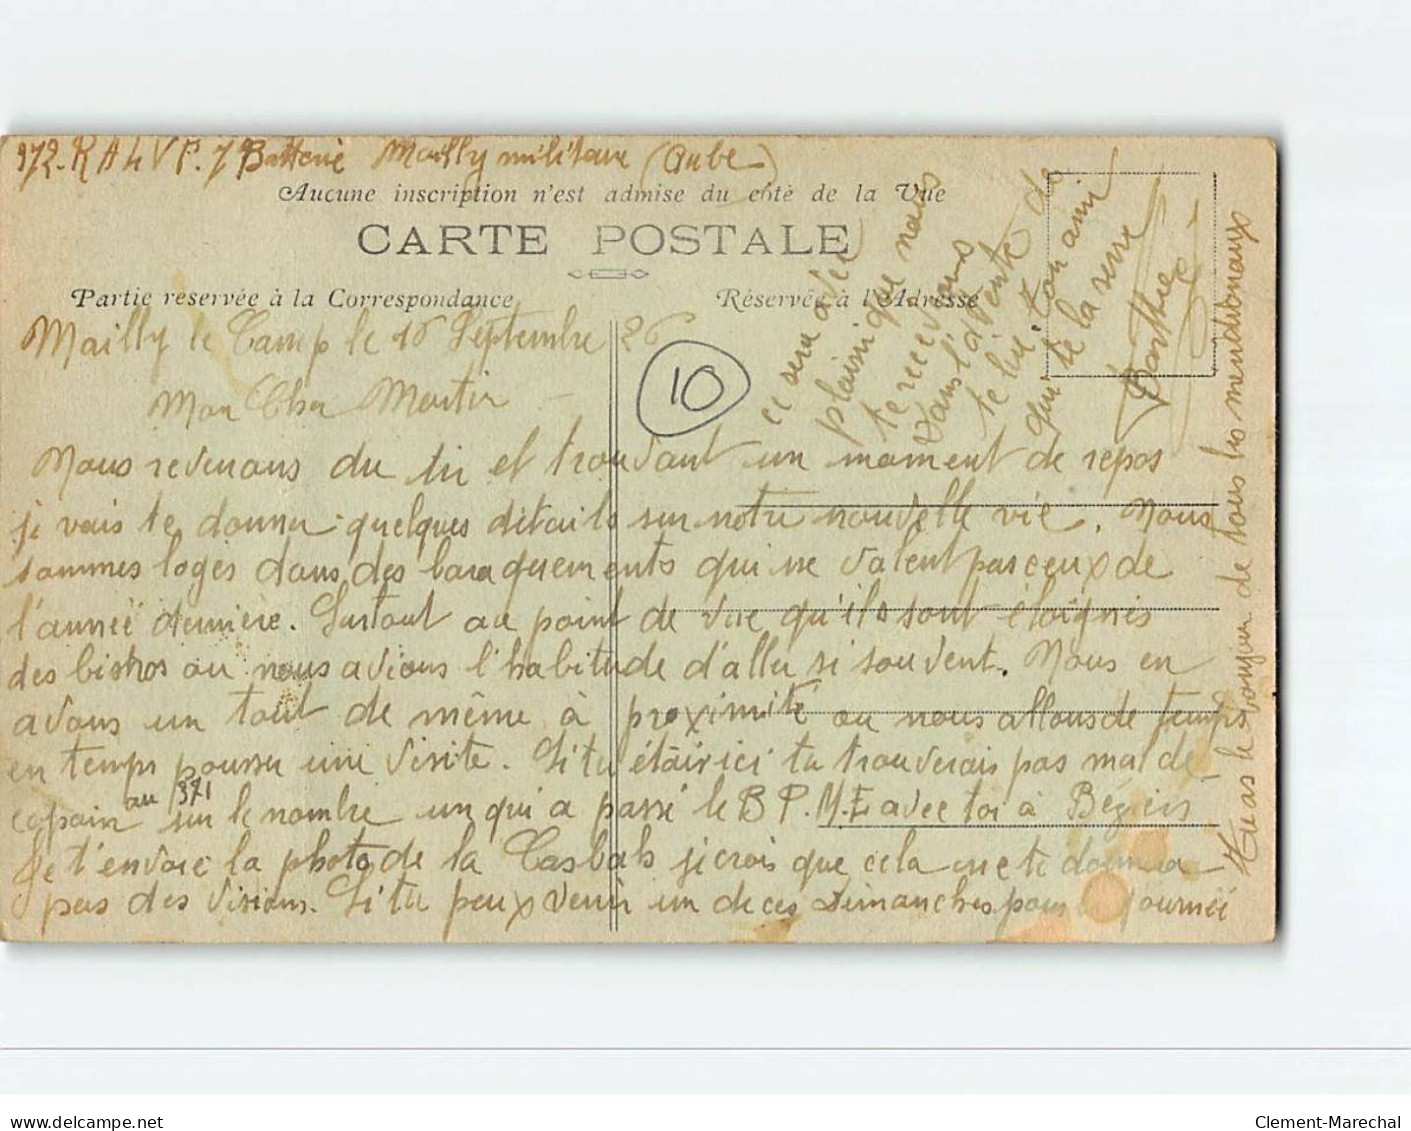 372. R A L V P. 7 Batterie Mailly militaire (Aube)
Aucune inscription n'est admise du côté de la Vue
CARTE POSTALE
Partie réservée à la Correspondance
Réservée à l'Adresse
Mailly le Camp le 16 Septembre 26
10
Mon Cher Martin
Nous revenons du tir et trouvant un moment de repos
je vais te donner quelques détails sur notre nouvelle vie. Nous
sommes logés dans des baraquements qui ne valent pas ceux de
l'année dernière. Surtout au point de vue qu'ils sont éloignés
des bistros ou nous avions l'habitude d'aller si souvent. Nous en
avons un tout de même à proximité ou nous allons de temps
en temps pousser une visite. Si tu étais ici tu trouverais pas mal de
copain au 371 sur le nombre un qui a passé le B P. M. E avec toi à Béziers
Je t'envoie la photo de la Casbah je crois que cela ne te donnera
pas des visions. Si tu peux venir un de ces Dimanches pour la journée
ce sera avec
plaisir que nous
te recevrons
Dans l'attente de
te lire ton ami
qui te la serre
Barthes
Tu as le bonjour de tous les meridionaux
www.delcampe.net
Clement-Marechal